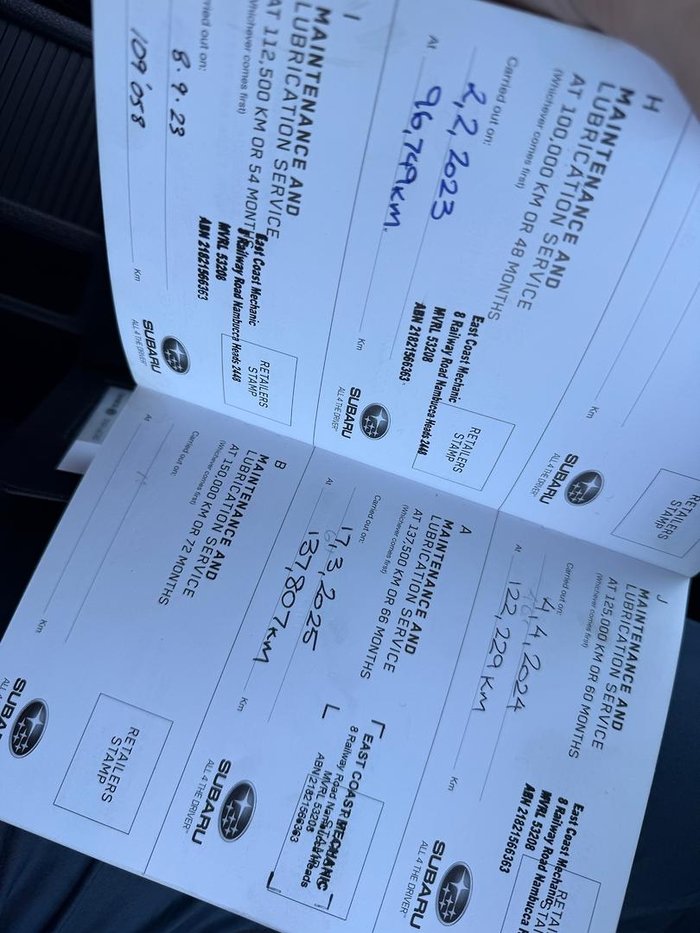 RETAILERS
STAMP
Km
SUBARU
ALL 4 THE DRIVER
H
MAINTENANCE AND
LUBRICATION SERVICE
AT 100,000 KM OR 48 MONTHS
(Whichever comes first)
Carried out on:
2,2,2023
At
96,749km.
Km
East Coast Mechanic
8 Railway Road Nambucca Heads 2448
MVRL 53208
ABN 21821566363
RETAILERS
STAMP
SUBARU
ALL 4 THE DRIVER
I
MAINTENANCE AND
LUBRICATION SERVICE
AT 112,500 KM OR 54 MONTHS
(Whichever comes first)
rried out on:
8.9.23
109'058
Km
East Coast Mechanic
8 Railway Road Nambucca Heads 2448
MVRL 53208
ABN 21821566363
RETAILERS
STAMP
SUBARU
ALL 4 THE DRIVER
J
MAINTENANCE AND
LUBRICATION SERVICE
AT 125,000 KM OR 60 MONTHS
(Whichever comes first)
Carried out on:
4,4,2024
At
122,229KM
Km
East Coast Mechanic
8 Railway Road Nambucca H
MVRL 53208
ABN 21821566363
RETAI
STA
SUBARU
ALL 4 THE DRIVER
A
MAINTENANCE AND
LUBRICATION SERVICE
AT 137,500 KM OR 66 MONTHS
(Whichever comes first)
Carried out on:
17,3,2025
At
137,807km
Km
EAST COAST MECHANIC
8 Railway Road Nambucca Heads
MVRL 53208
ABN 21821566363
SUBARU
ALL 4 THE DRIVER
B
MAINTENANCE AND
LUBRICATION SERVICE
AT 150,000 KM OR 72 MONTHS
(Whichever comes first)
Carried out on:
At
Km
RETAILERS
STAMP
SUBA
ALL 4